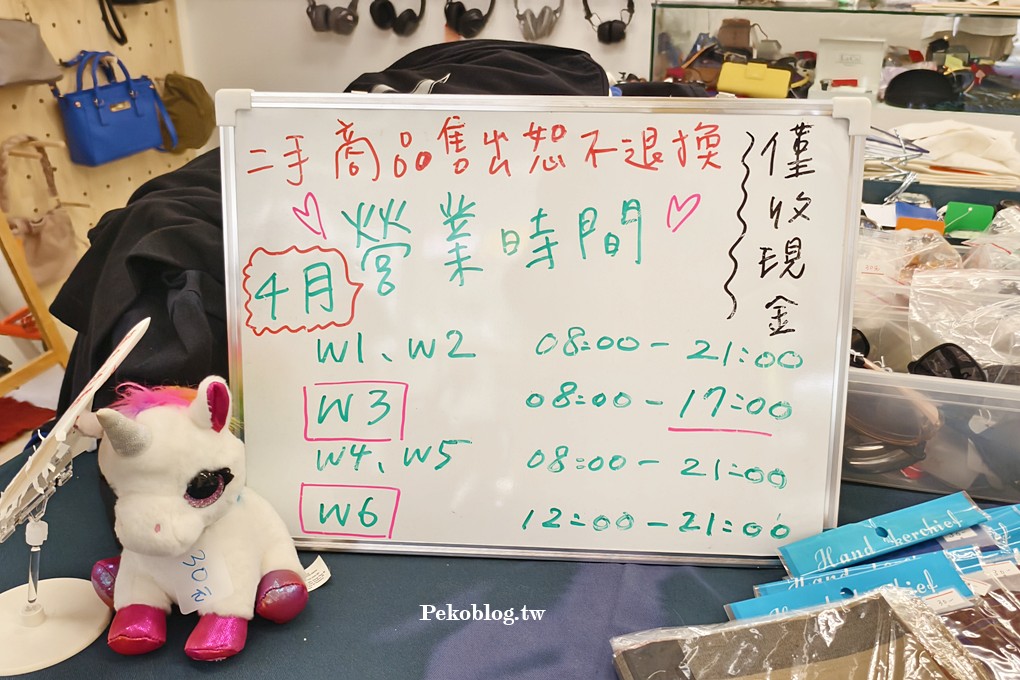 二手商品售出恕不退換
僅收現金
營業時間
4月
W1、W2 08:00-21:00
W3 08:00-17:00
W4、W5 08:00-21:00
W6 12:00-21:00
30元
Hand kerchief
Hand kerchief
Pekoblog.tw